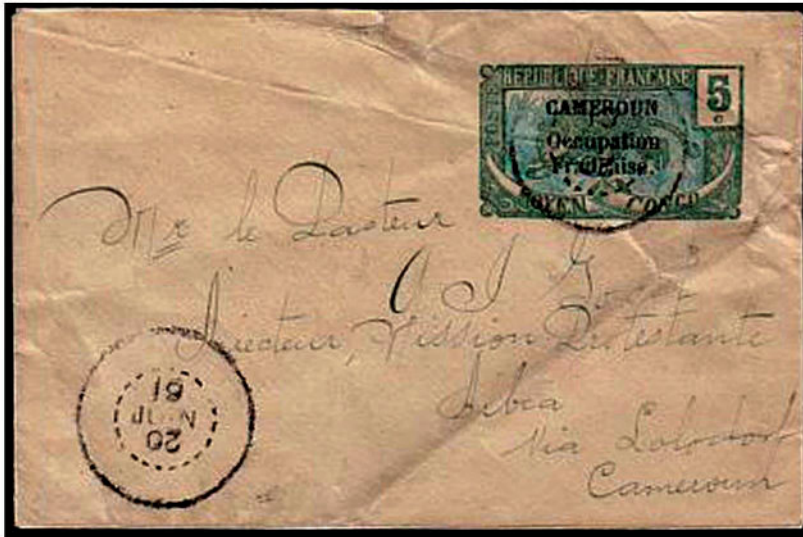 REPUBLIQUE FRANCAISE
POSTES
5
c
CAMEROUN
Occupation
Française.
MOYEN CONGO
Mr le Pasteur
Directeur, Mission Protestante
Sibia
via Lolodorf
Cameroun
20
JUIN
19